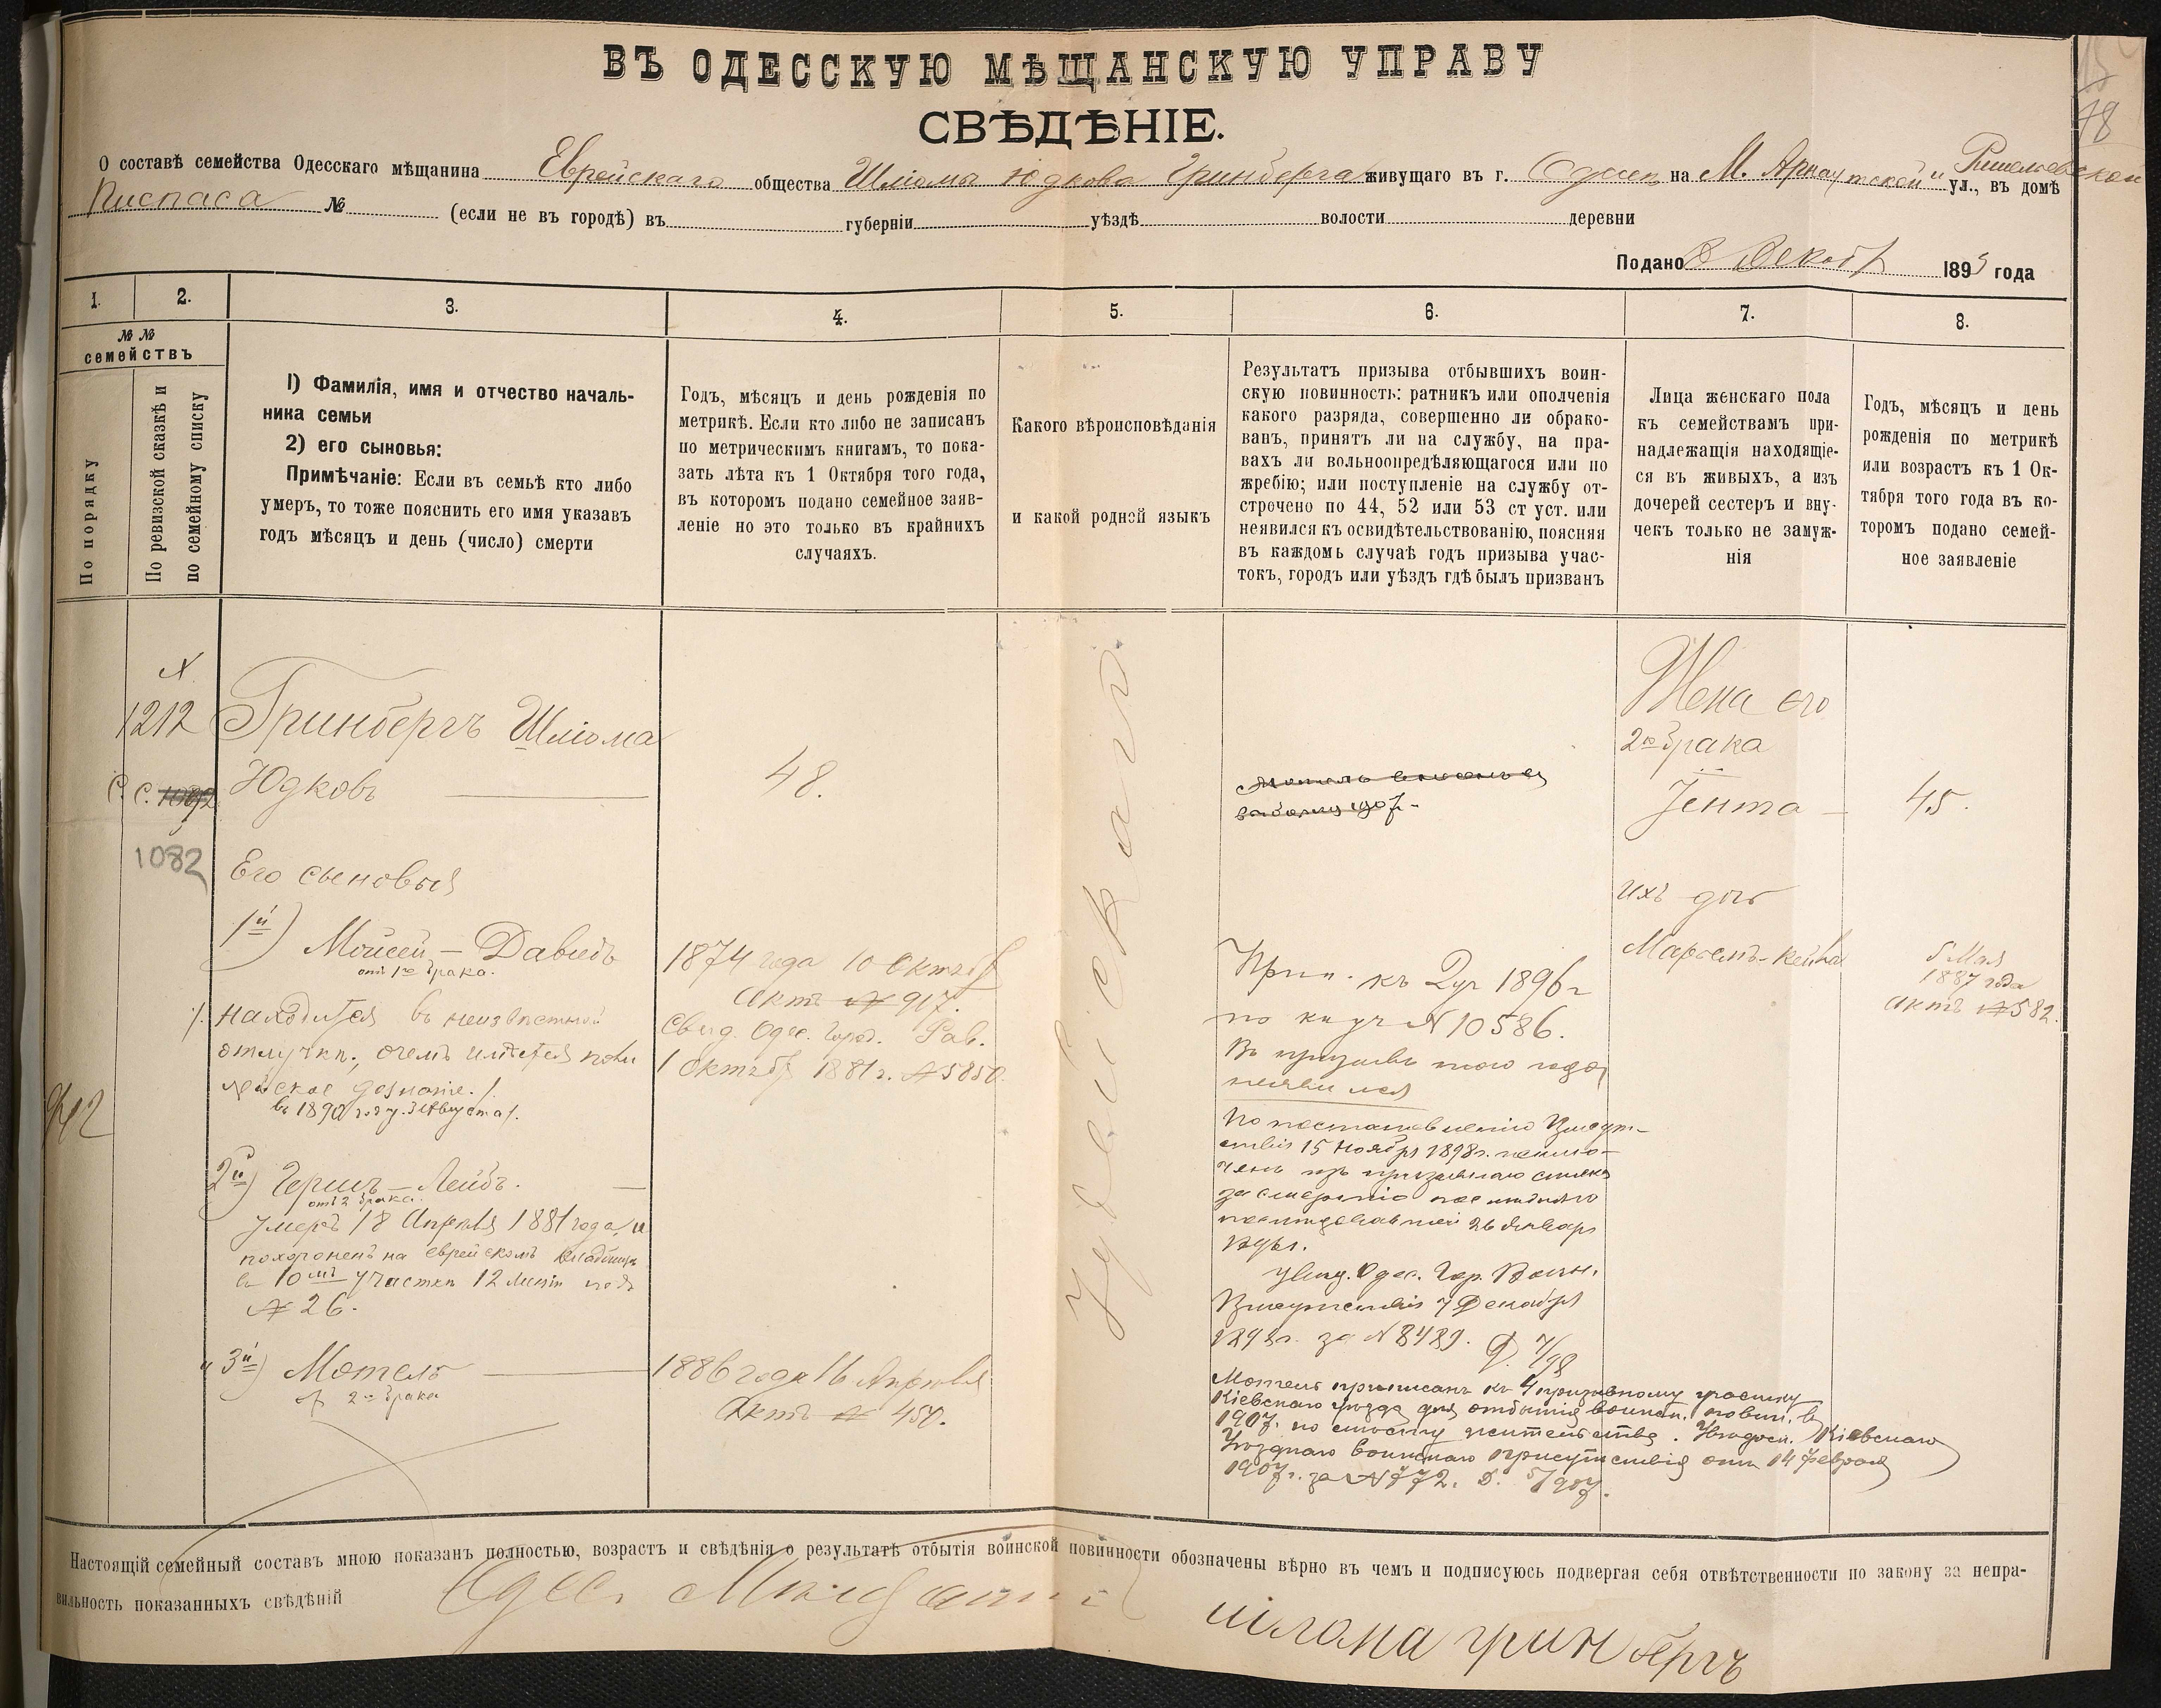 ВЪ ОДЕССКУЮ МѢЩАНСКУЮ УПРАВУ
СВѢДѢНІЕ.
О составѣ семейства Одесскаго мѣщанина Еврейскаго общества Шліомы Юдкова Гринберга живущаго въ г. Одессѣ на М. Арнаутской и Ришельевской ул., въ домѣ
Писпаса № (если не въ городѣ) въ губерніи уѣздѣ волости деревни
Подано 8 Декабр 1893 года
1. 2. 3. 4. 5. 6. 7. 8.
№ №
семействъ
По порядку
По ревизской сказкѣ и
по семейному списку
1) Фамилія, имя и отчество началь-
ника семьи
2) его сыновья:
Примѣчаніе: Если въ семьѣ кто либо
умеръ, то тоже пояснить его имя указавъ
годъ мѣсяцъ и день (число) смерти
Годъ, мѣсяцъ и день рожденія по
метрикѣ. Если кто либо не записанъ
по метрическимъ книгамъ, то пока-
зать лѣта къ 1 Октября того года,
въ которомъ подано семейное заяв-
леніе но это только въ крайнихъ
случаяхъ.
Какого вѣроисповѣданія
и какой родной языкъ
Результатъ призыва отбывшихъ воин-
скую повинность: ратникъ или ополченія
какого разряда, совершенно ли обрако-
ванъ, принятъ ли на службу, на пра-
вахъ ли вольноопредѣляющагося или по
жребію; или поступленіе на службу от-
строчено по 44, 52 или 53 ст уст. или
неявился къ освидѣтельствованію, поясняя
въ каждомъ случаѣ годъ призыва учас-
токъ, городъ или уѣздъ гдѣ былъ призванъ
Лица женскаго пола
къ семействамъ при-
надлежащія находящіе-
ся въ живыхъ, а изъ
дочерей сестеръ и вну-
чекъ только не замуж-
нія
Годъ, мѣсяцъ и день
рожденія по метрикѣ
или возрастъ къ 1 Ок-
тября того года въ ко-
торомъ подано семей-
ное заявленіе
1212
С. С.
1082
Гринбергъ Шліома
Юдковъ
48.
Его сыновья
1й) Мойсей - Давидъ
отъ 1го брака.
находится въ неизвѣстной
отлучкѣ, очемъ имѣется поли
цейское дознаніе.
въ 1890 году 3 Августа
2й) Гершъ - Лейбъ.
отъ 2 брака.
умеръ 18 Апрѣля 1881 года, и
похороненъ на еврейскомъ кладбищѣ
въ 10мъ участкѣ 12 линіи подъ
№ 26.
3й) Мотель
отъ 2го брака
1874 года 10 Октябр
Актъ № 917.
Свид. Одес. Город. Рав.
1 Октябр 1881 г. № 5850
1886 года 16 Апрѣля
Актъ № 450.
Іудейскаго
Прип. къ 2 уч 1896 г
по кн уч № 10586.
Въ призывъ того года
неявился
По постановленію Присут-
ствія 15 Ноября 1898 г. исклю-
ченъ изъ призывнаго списка
за смертію послѣдняго
послѣдовавшей 26 Января
Увѣд. Одес. Гор. Воин.
Присутствія 7 Декабря
1898 г. за № 8429.
Мотель приписанъ къ 4 призывному участку
Кіевскаго уѣзда для отбытія воинск. повин. въ
1907 г. по списку жительства. Увѣдом. Кіевскаго
Уѣзднаго воинскаго присутствія отъ 14 февраля
1907 г. за № 772.
Жена его
2го брака
Јента
45.
Ихъ дочь
5 Мая
1887 года
Актъ № 582.
Настоящій семейный составъ мною показанъ полностью, возрастъ и свѣдѣнія о результатѣ отбытія воинской повинности обозначены вѣрно въ чемъ и подписуюсь подвергая себя отвѣтственности по закону за непра-
вильность показанныхъ свѣдѣній
Одес. Мѣщанинъ
шлома гринбергъ